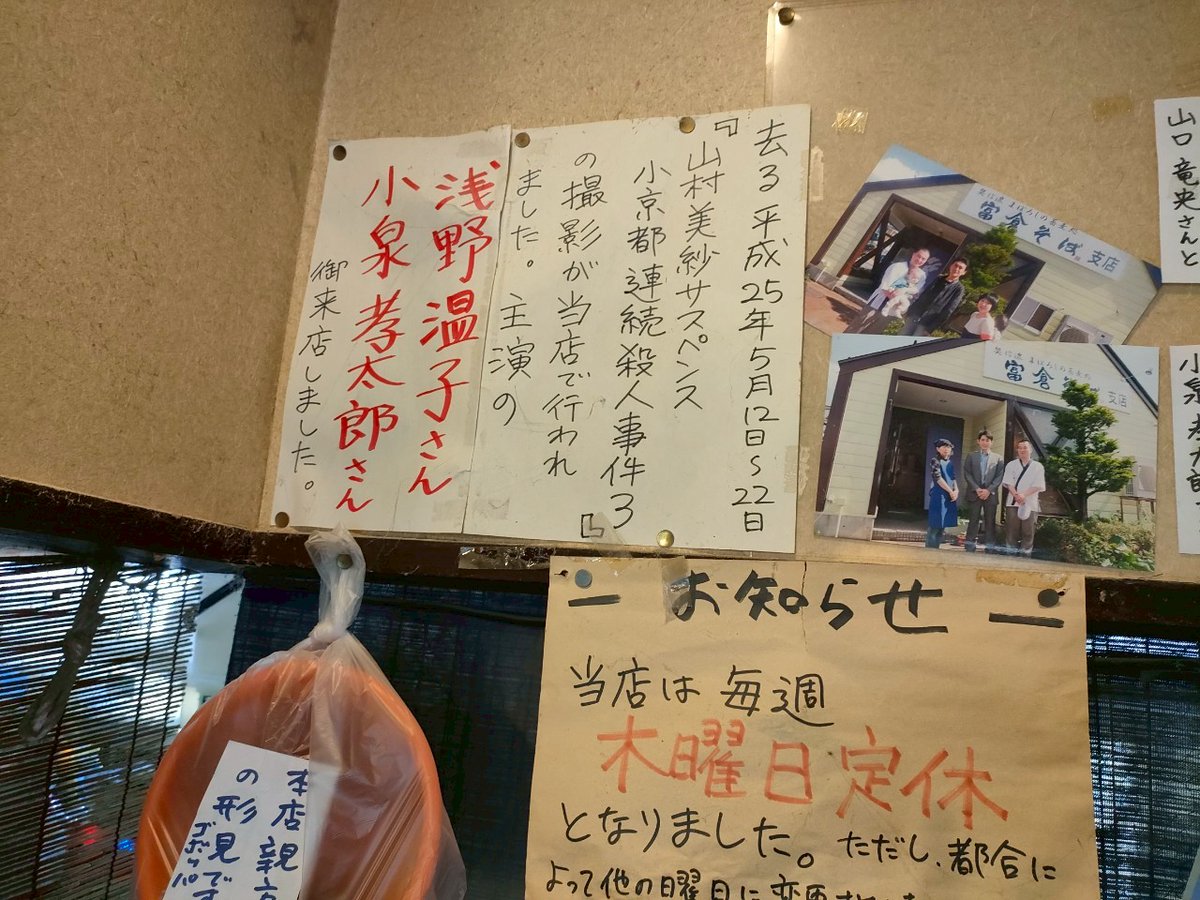 去る平成25年5月12日～22日
『山村美紗サスペンス
小京都連続殺人事件3』
の撮影が当店で行われ
ました。主演の
浅野温子さん
小泉孝太郎さん
御来店しました。
奥信濃 まぼろしの蕎麦処
富倉そば 支店
富倉そば 支店
山口 竜央さんと
小泉孝太郎
お知らせ
当店は 毎週
木曜日定休
となりました。ただし、都合に
よって他の曜日に変更
本店親方
の形見です